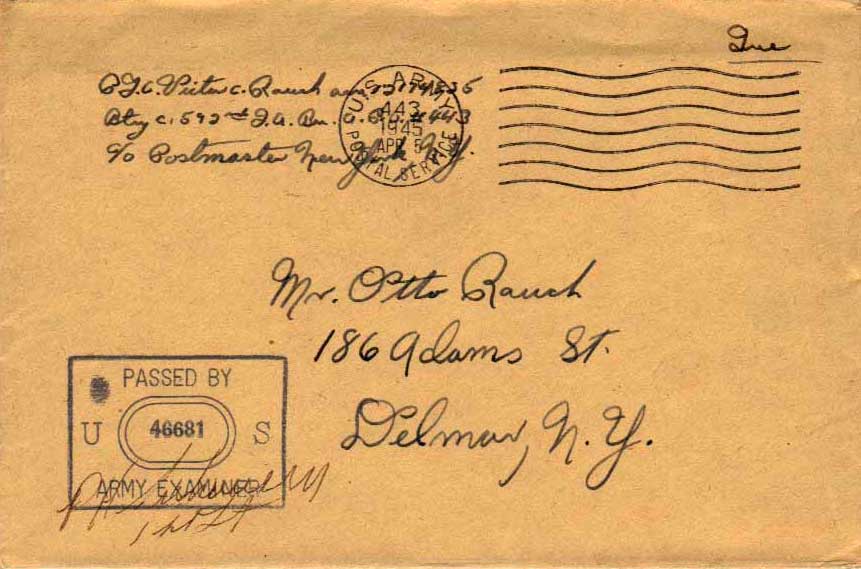 Free
Pfc. Victor C. Rauch
Btry C. 592nd F.A. Bn. A.P.O. #443
c/o Postmaster New York N.Y.
U.S. ARMY
443
1945
APR 5
POSTAL SERVICE
Mr. Otto Rauch
186 Adams St.
Delmar, N.Y.
PASSED BY
U 46681 S
ARMY EXAMINER
1st Lt